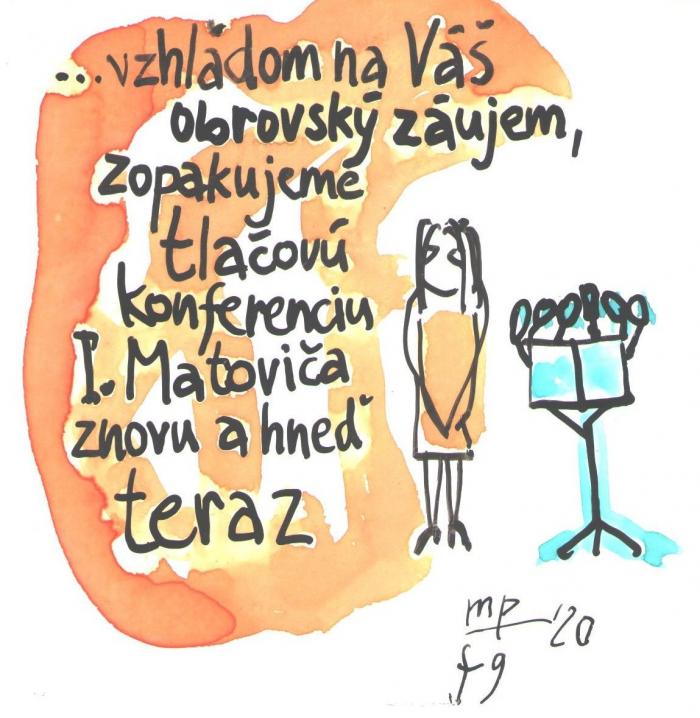 ...vzhľadom na Váš
obrovský záujem,
zopakujeme
tlačovú
konferenciu
I. Matoviča
znovu a hneď
teraz
mp '20
fg